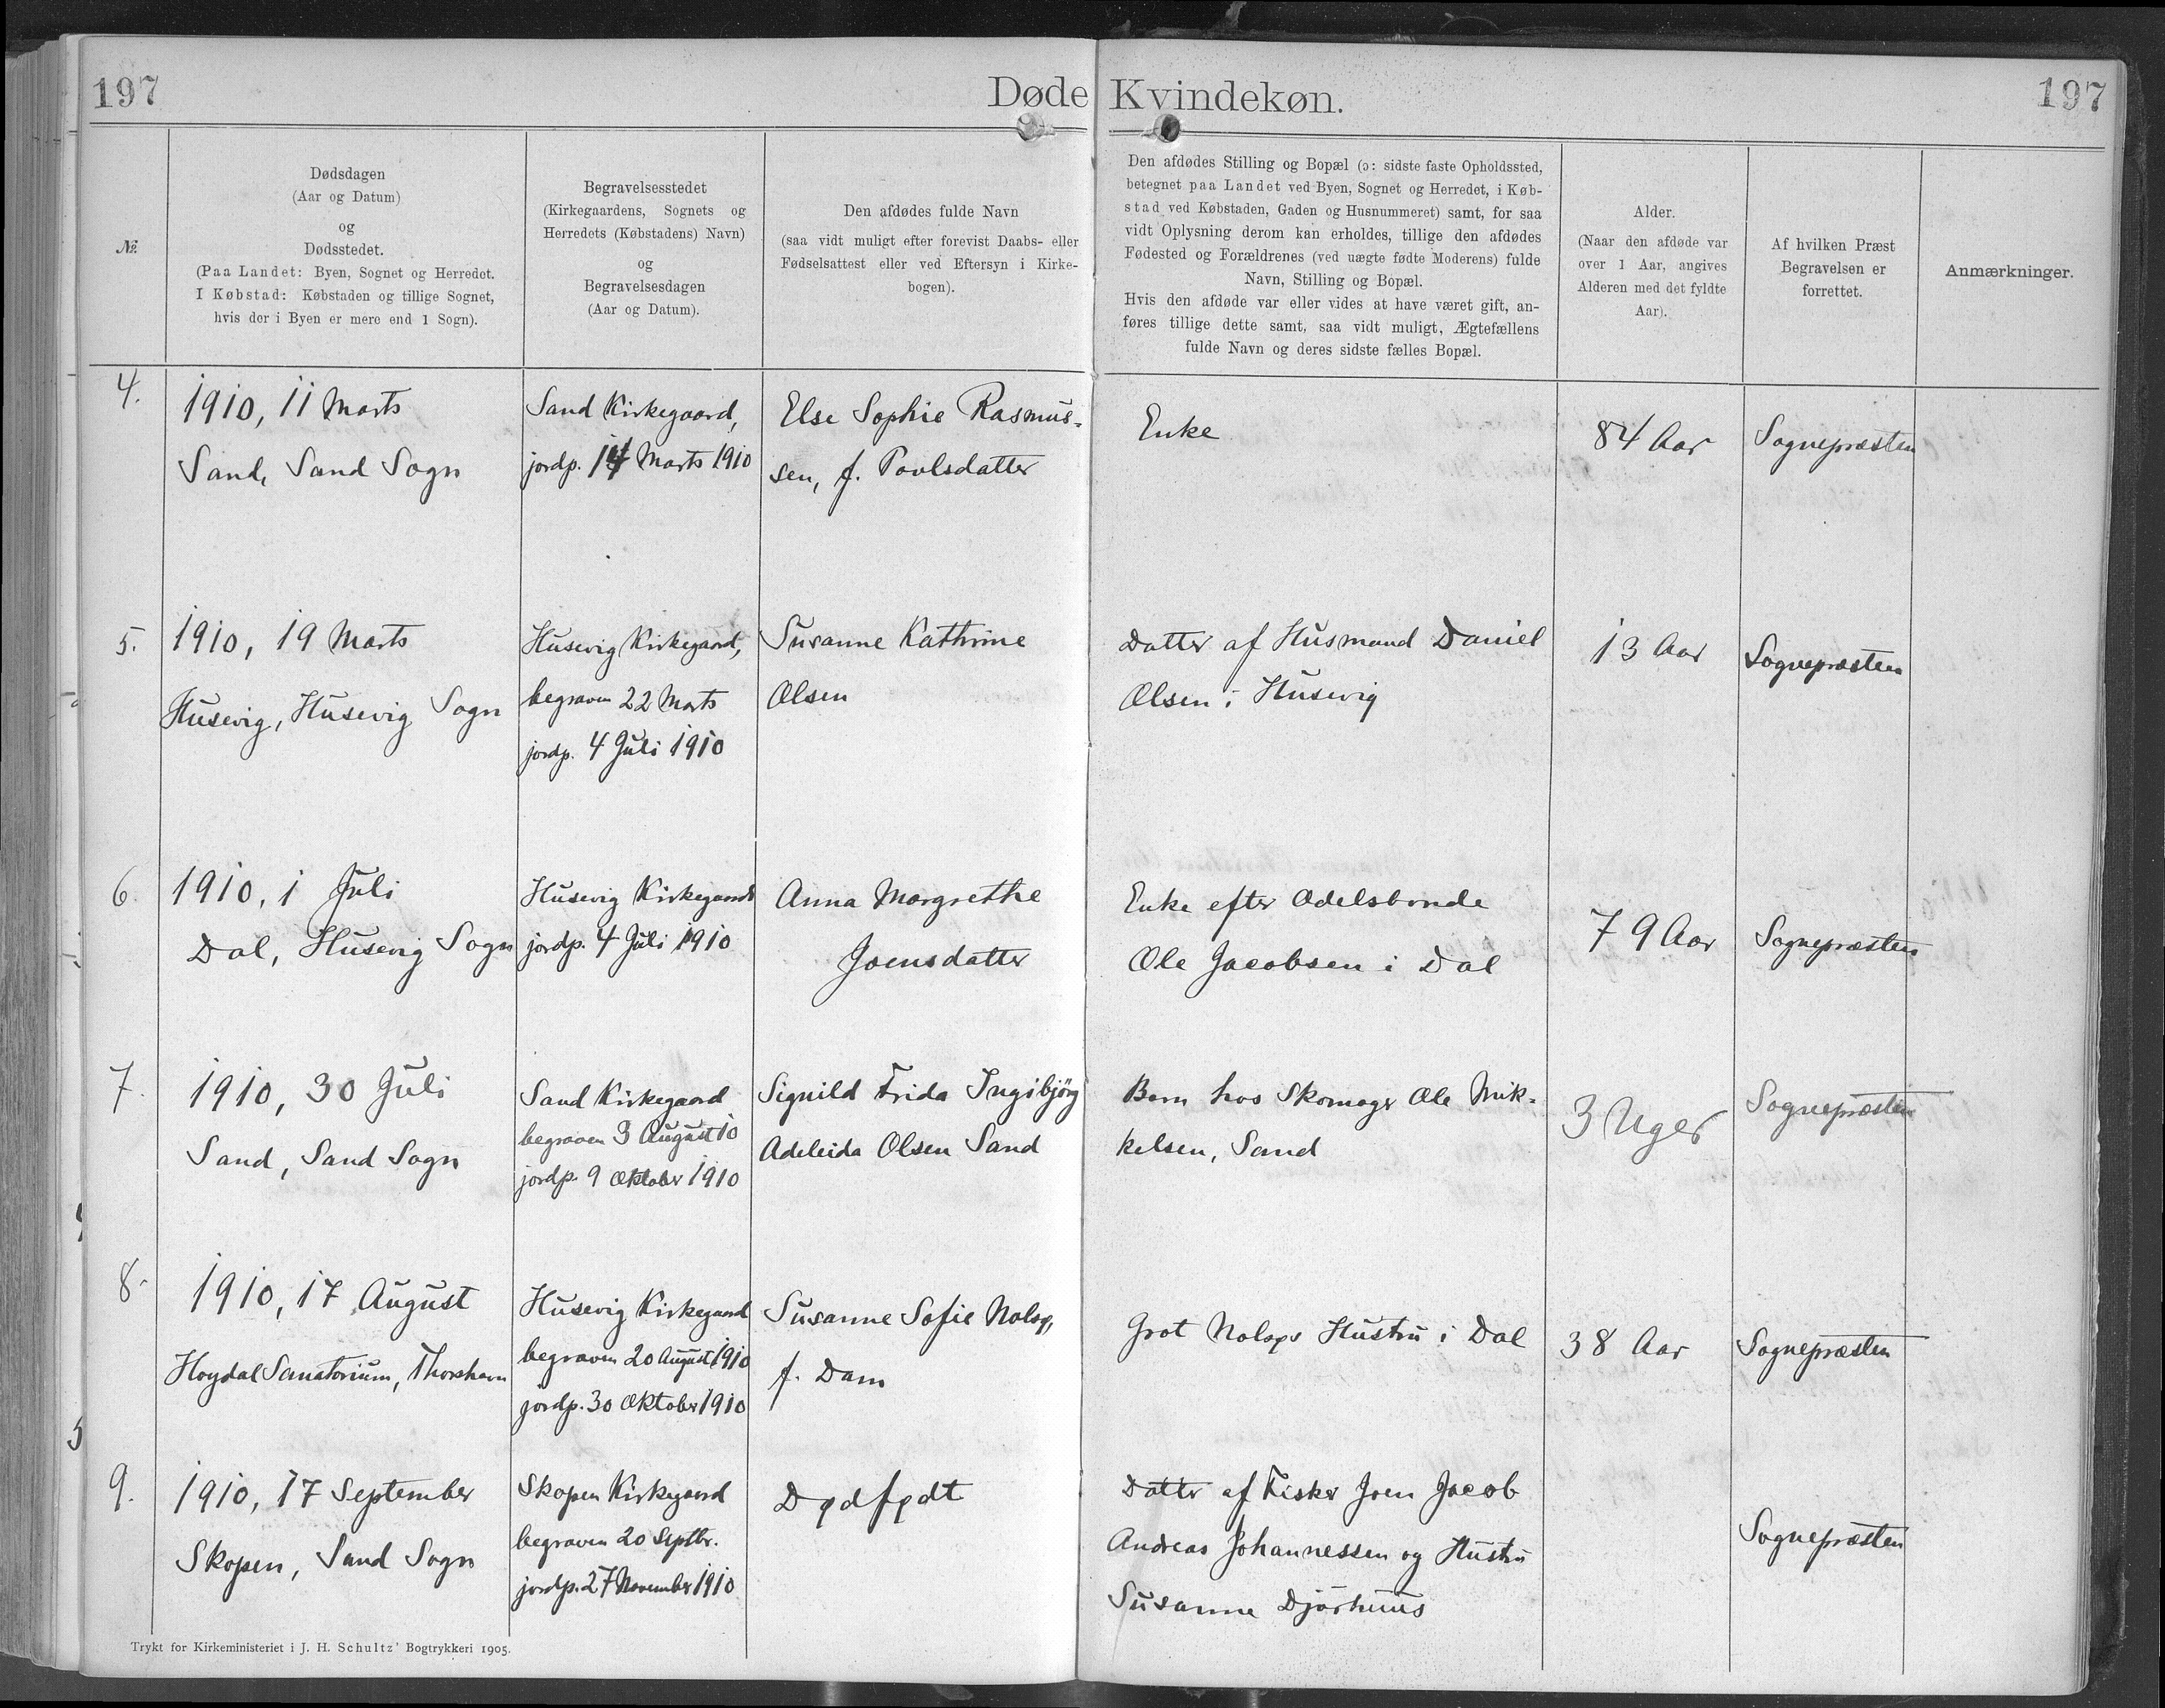 197
Døde Kvindekøn.
197
№
Dødsdagen
(Aar og Datum)
og
Dødsstedet.
(Paa Landet: Byen, Sognet og Herredet.
I Købstad: Købstaden og tillige Sognet,
hvis der i Byen er mere end 1 Sogn).
Begravelsesstedet
(Kirkegaardens, Sognets og
Herredets (Købstadens) Navn)
og
Begravelsesdagen
(Aar og Datum).
Den afdødes fulde Navn
(saa vidt muligt efter forevist Daabs- eller
Fødselsattest eller ved Eftersyn i Kirke-
bogen).
Den afdødes Stilling og Bopæl (ɔ: sidste faste Opholdssted,
betegnet paa Landet ved Byen, Sognet og Herredet, i Køb-
stad ved Købstaden, Gaden og Husnummeret) samt, for saa
vidt Oplysning derom kan erholdes, tillige den afdødes
Fødested og Forældrenes (ved uægte fødte Moderens) fulde
Navn, Stilling og Bopæl.
Hvis den afdøde var eller vides at have været gift, an-
føres tillige dette samt, saa vidt muligt, Ægtefællens
fulde Navn og deres sidste fælles Bopæl.
Alder.
(Naar den afdøde var
over 1 Aar, angives
Alderen med det fyldte
Aar).
Af hvilken Præst
Begravelsen er
forrettet.
Anmærkninger.
4.
1910, 11 Marts
Sand, Sand Sogn
Sand Kirkegaard,
jordp. 14 Marts 1910
Else Sophie Rasmus-
sen, f. Povlsdatter
Enke
84 Aar
Sognepræsten
5.
1910, 19 Marts
Husevig, Husevig Sogn
Husevig Kirkegaard,
begraven 22 Marts
jordp. 4 Juli 1910
Susanne Kathrine
Olsen
Datter af Husmand Daniel
Olsen i Husevig
13 Aar
Sognepræsten
6.
1910, 1 Juli
Dal, Husevig Sogn
Husevig Kirkegaard
jordp. 4 Juli 1910
Anna Margrethe
Joensdatter
Enke efter Odelsbonde
Ole Jacobsen i Dal
79 Aar
Sognepræsten
7.
1910, 30 Juli
Sand, Sand Sogn
Sand Kirkegaard
begraven 3 August 10
jordp. 9 Oktober 1910
Signild Frida Ingibjörg
Adeleida Olsen Sand
Barn hos Skomager Ole Mik-
kelsen, Sand
3 Uger
Sognepræsten
8.
1910, 17 August
Hoydal Sanatorium, Thorshavn
Husevig Kirkegaard
begraven 20 August 1910
jordp. 30 Oktober 1910
Susanne Sofie Nolsø,
f. Dam
Grot Nolsøs Hustru i Dal
38 Aar
Sognepræsten
9.
1910, 17 September
Skopen, Sand Sogn
Skopen Kirkegaard
begraven 20 Septbr.
jordp. 27 November 1910
Dødfødt
Datter af Fisker Joen Jacob
Andreas Johannessen og Hustru
Susanne Djórhuus
Sognepræsten
Trykt for Kirkeministeriet i J. H. Schultz' Bogtrykkeri 1905.